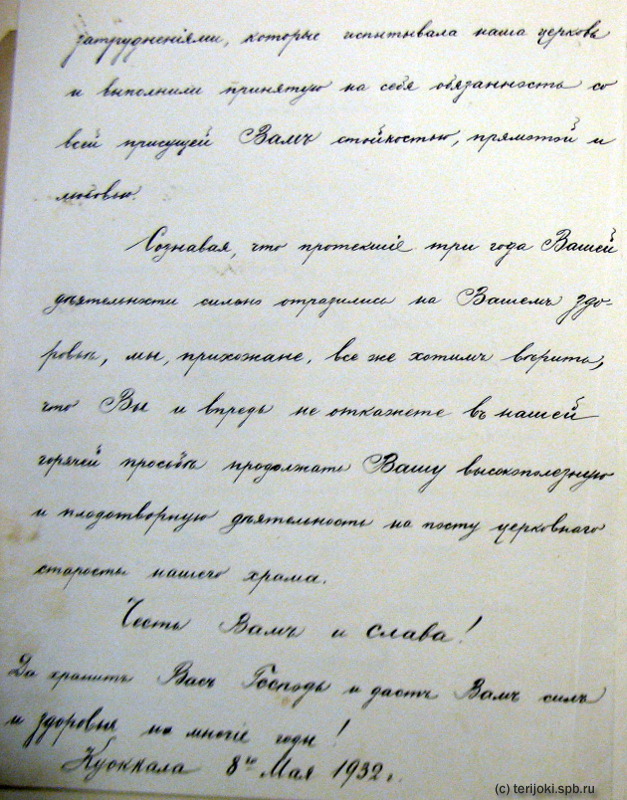 затрудненіями, которые испытывала наша церковь
и выполнили принятую на себя обязанность со
всей присущей Вамъ стойкостью, прямотой и
любовью.
Сознавая, что протекшіе три года Вашей
дѣятельности сильно отразились на Вашемъ здо-
ровьи, мы, прихожане, все же хотимъ вѣрить,
что Вы и впредь не откажете въ нашей
горячей просьбѣ продолжать Вашу высокополезную
и плодотворную дѣятельность на посту церковнаго
старосты нашего храма.
Честь Вамъ и слава!
Да хранитъ Васъ Господь и дастъ Вамъ силъ
и здоровья на многіе годы!
Куоккала 8го Мая 1932 г.
(c) terijoki.spb.ru